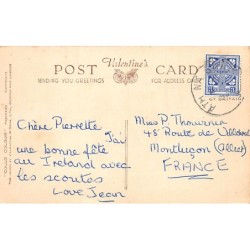 Valentine's
POST CARD
SENDING YOU GREETINGS
FOR ADDRESS ON
Chère Pierrette J'ai
une bonne fête
au Ireland avec
les scoutos
Love Jean
Miss P. Thournier
48 Route de
Montluçon (Allier)
FRANCE